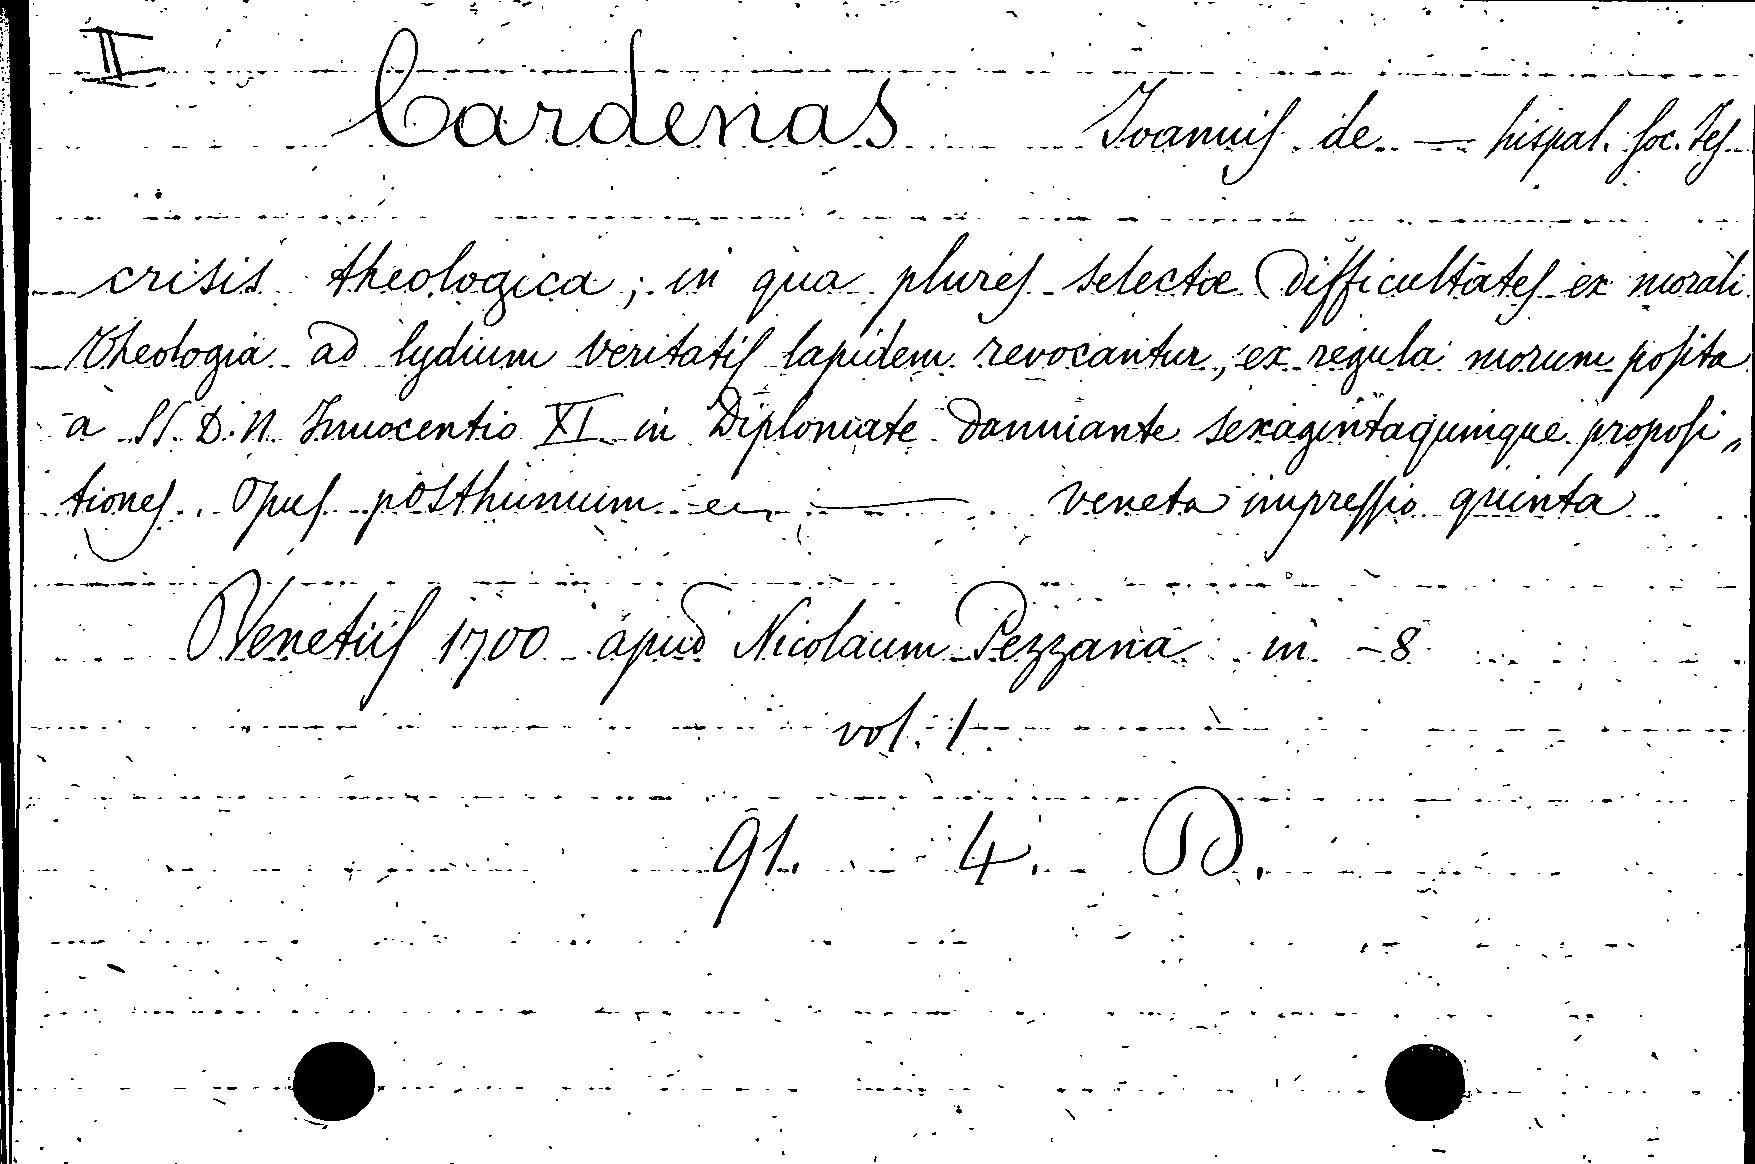 II
Cardenas Joannis de — hispal. Soc. Jes
crisis theologica; in qua plures selectæ difficultates ex morali
theologia ad lydium veritatis lapidem revocantur, ex regula morum posita
a SS. D. N. Innocentio XI in Diplomate damnante sexagintaquinque proposi„
tiones. Opus posthumum — veneta impressio quinta
Venetiis 1700 apud Nicolaum Pezzana in -8
vol. 1
91. 4. D.